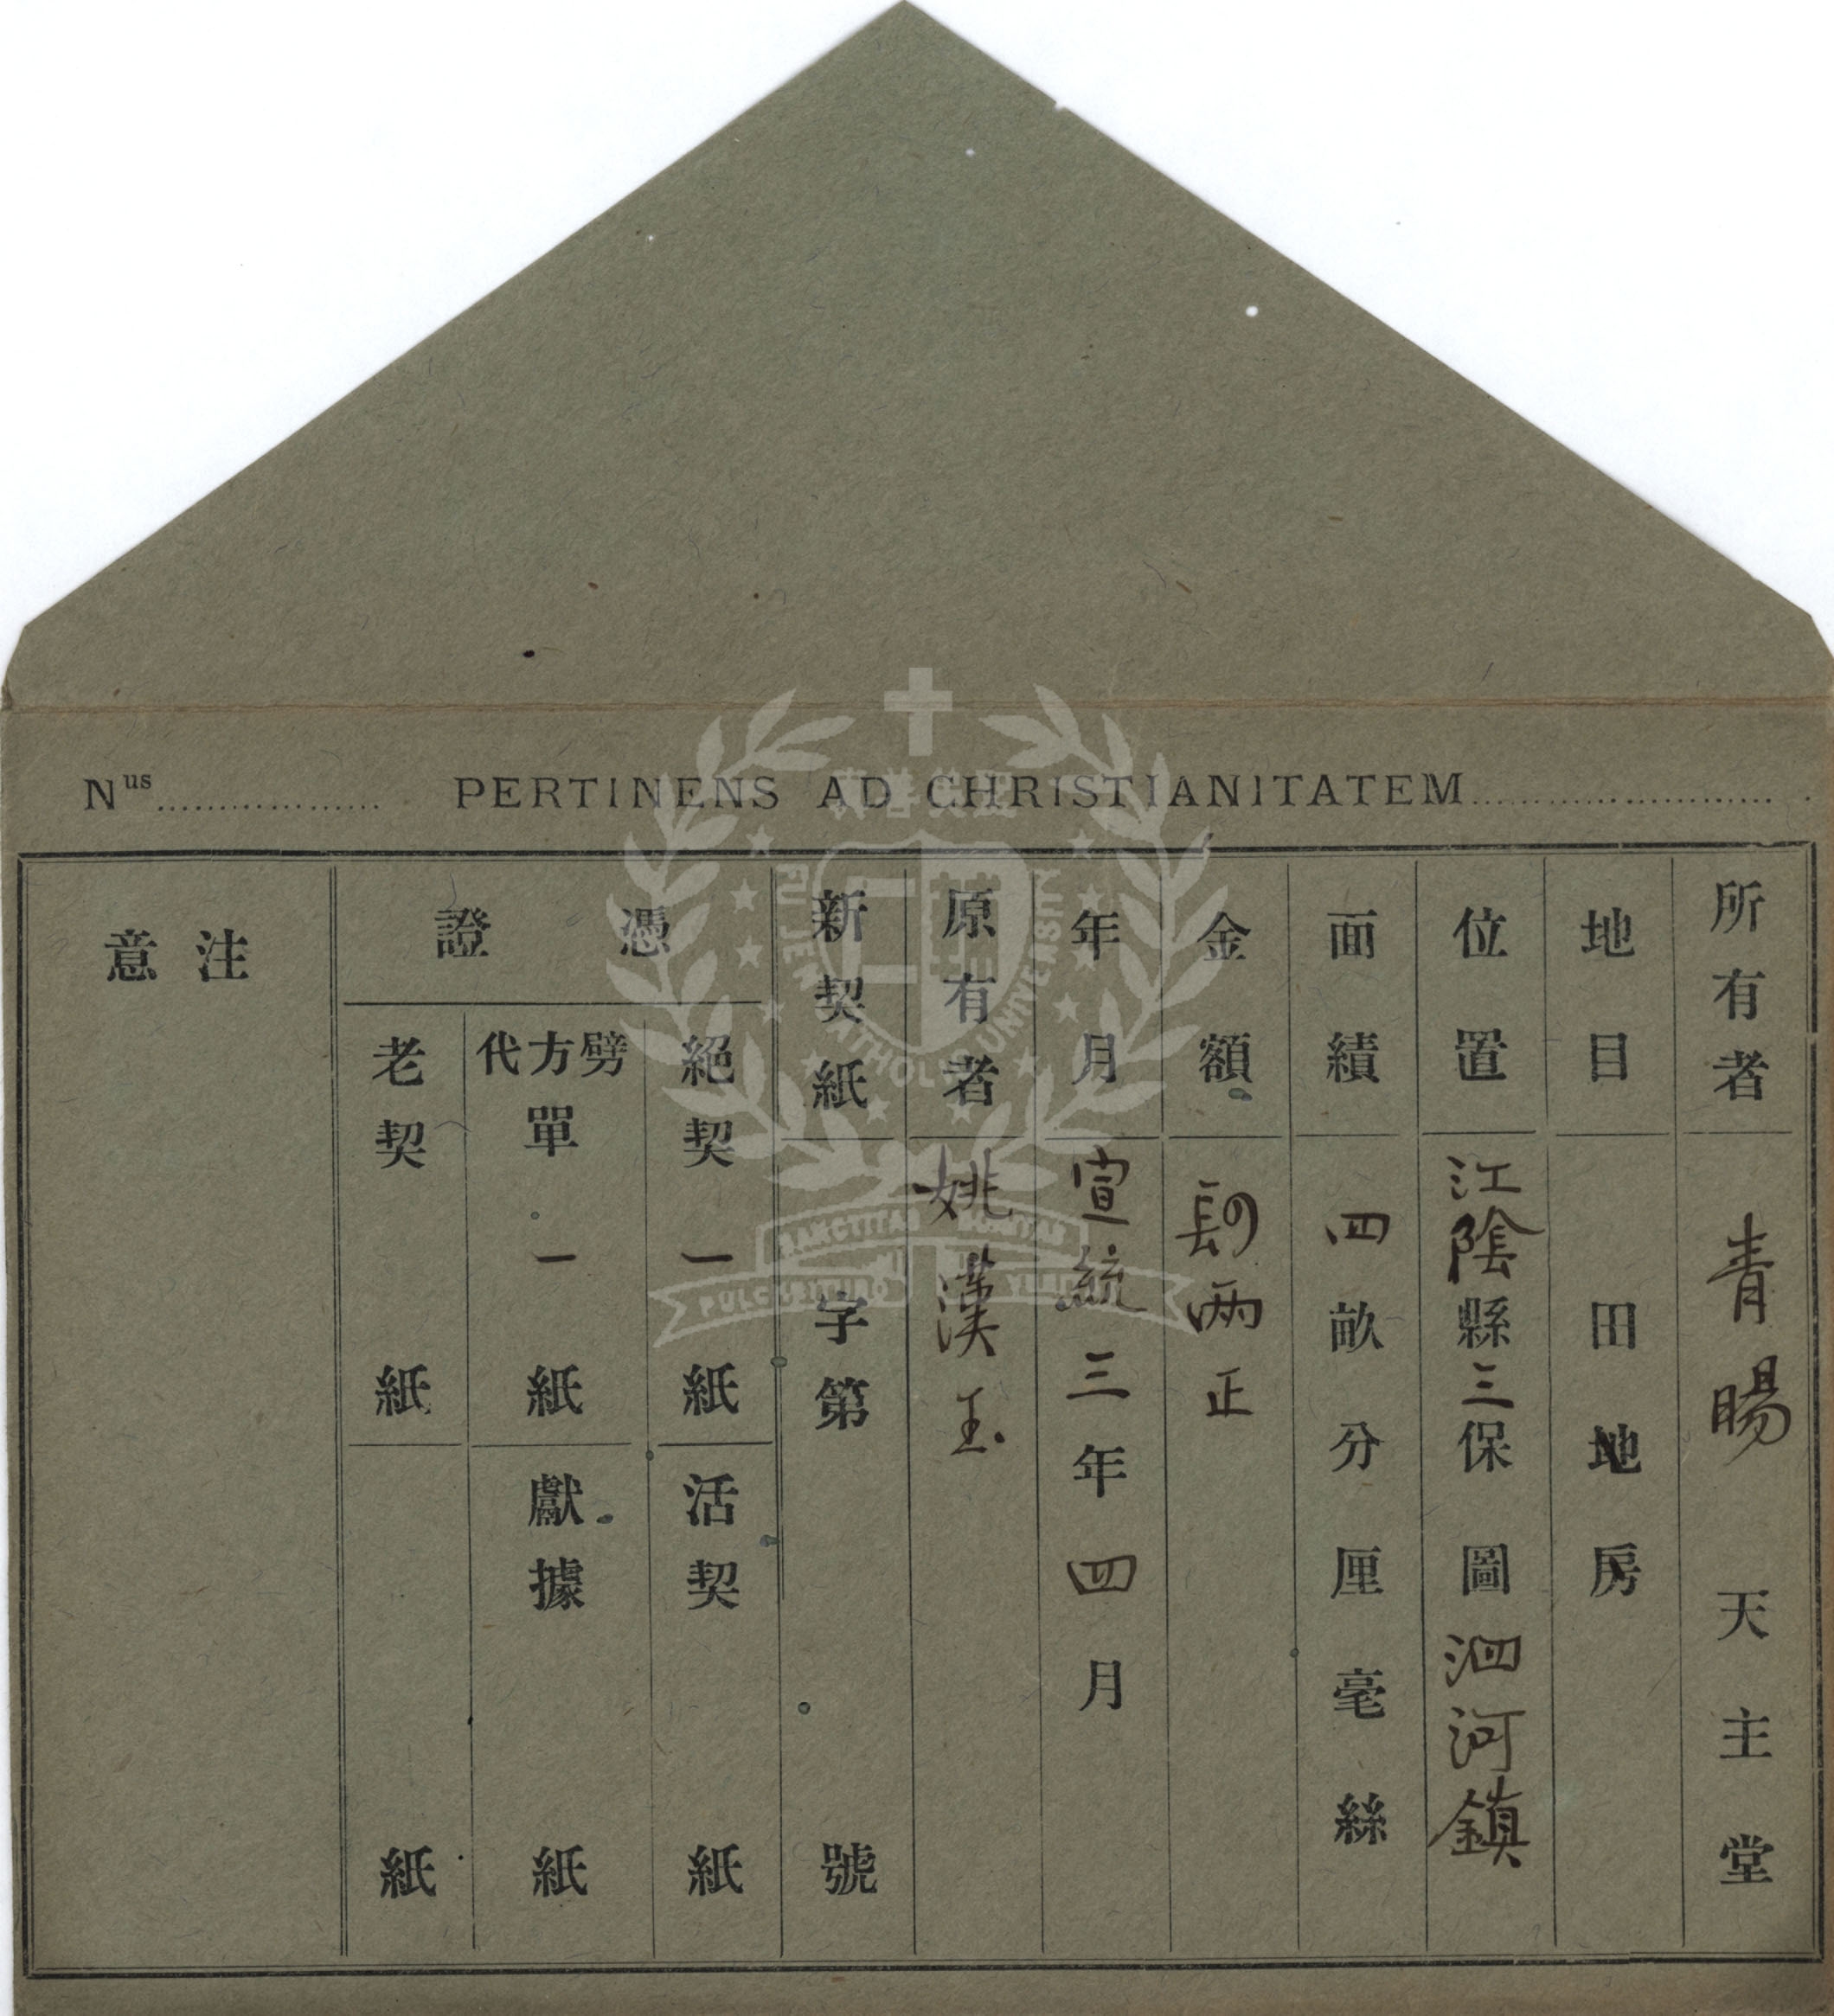 Nus.................. PERTINENS AD CHRISTIANITATEM........................
所有者 青暘 天主堂
地目 田地房
位置 江陰縣三保圖泗河鎮
面績 四畝分厘毫絲
金額 兩正
年月 宣統三年四月
原有者 姚漢玉
新契紙 字第 號
憑證
絕契 一 紙
活契 紙
劈方代單 一 紙
獻據 紙
老契 紙
紙
注意
FU JEN CATHOLIC UNIVERSITY